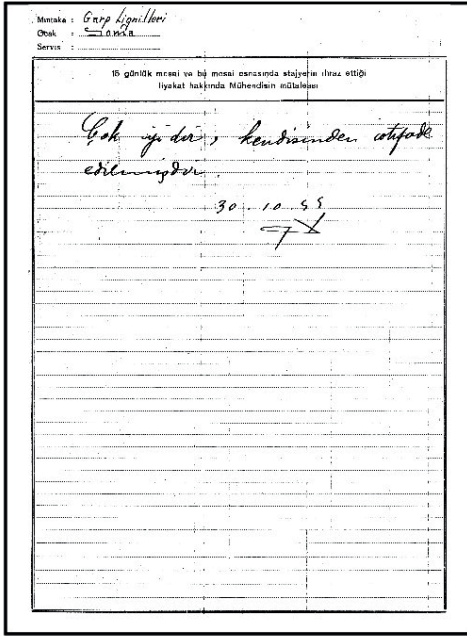 Mıntaka : Garp Lignitleri
Ocak : Soma
Servis :
15 günlük mesai ve bu mesai esnasında stajyerin ihraz ettiği
liyakat hakkında Mühendisin mütaleası
Çok iyidir, kendisinden istifade
edilmişdir.
30.10.55